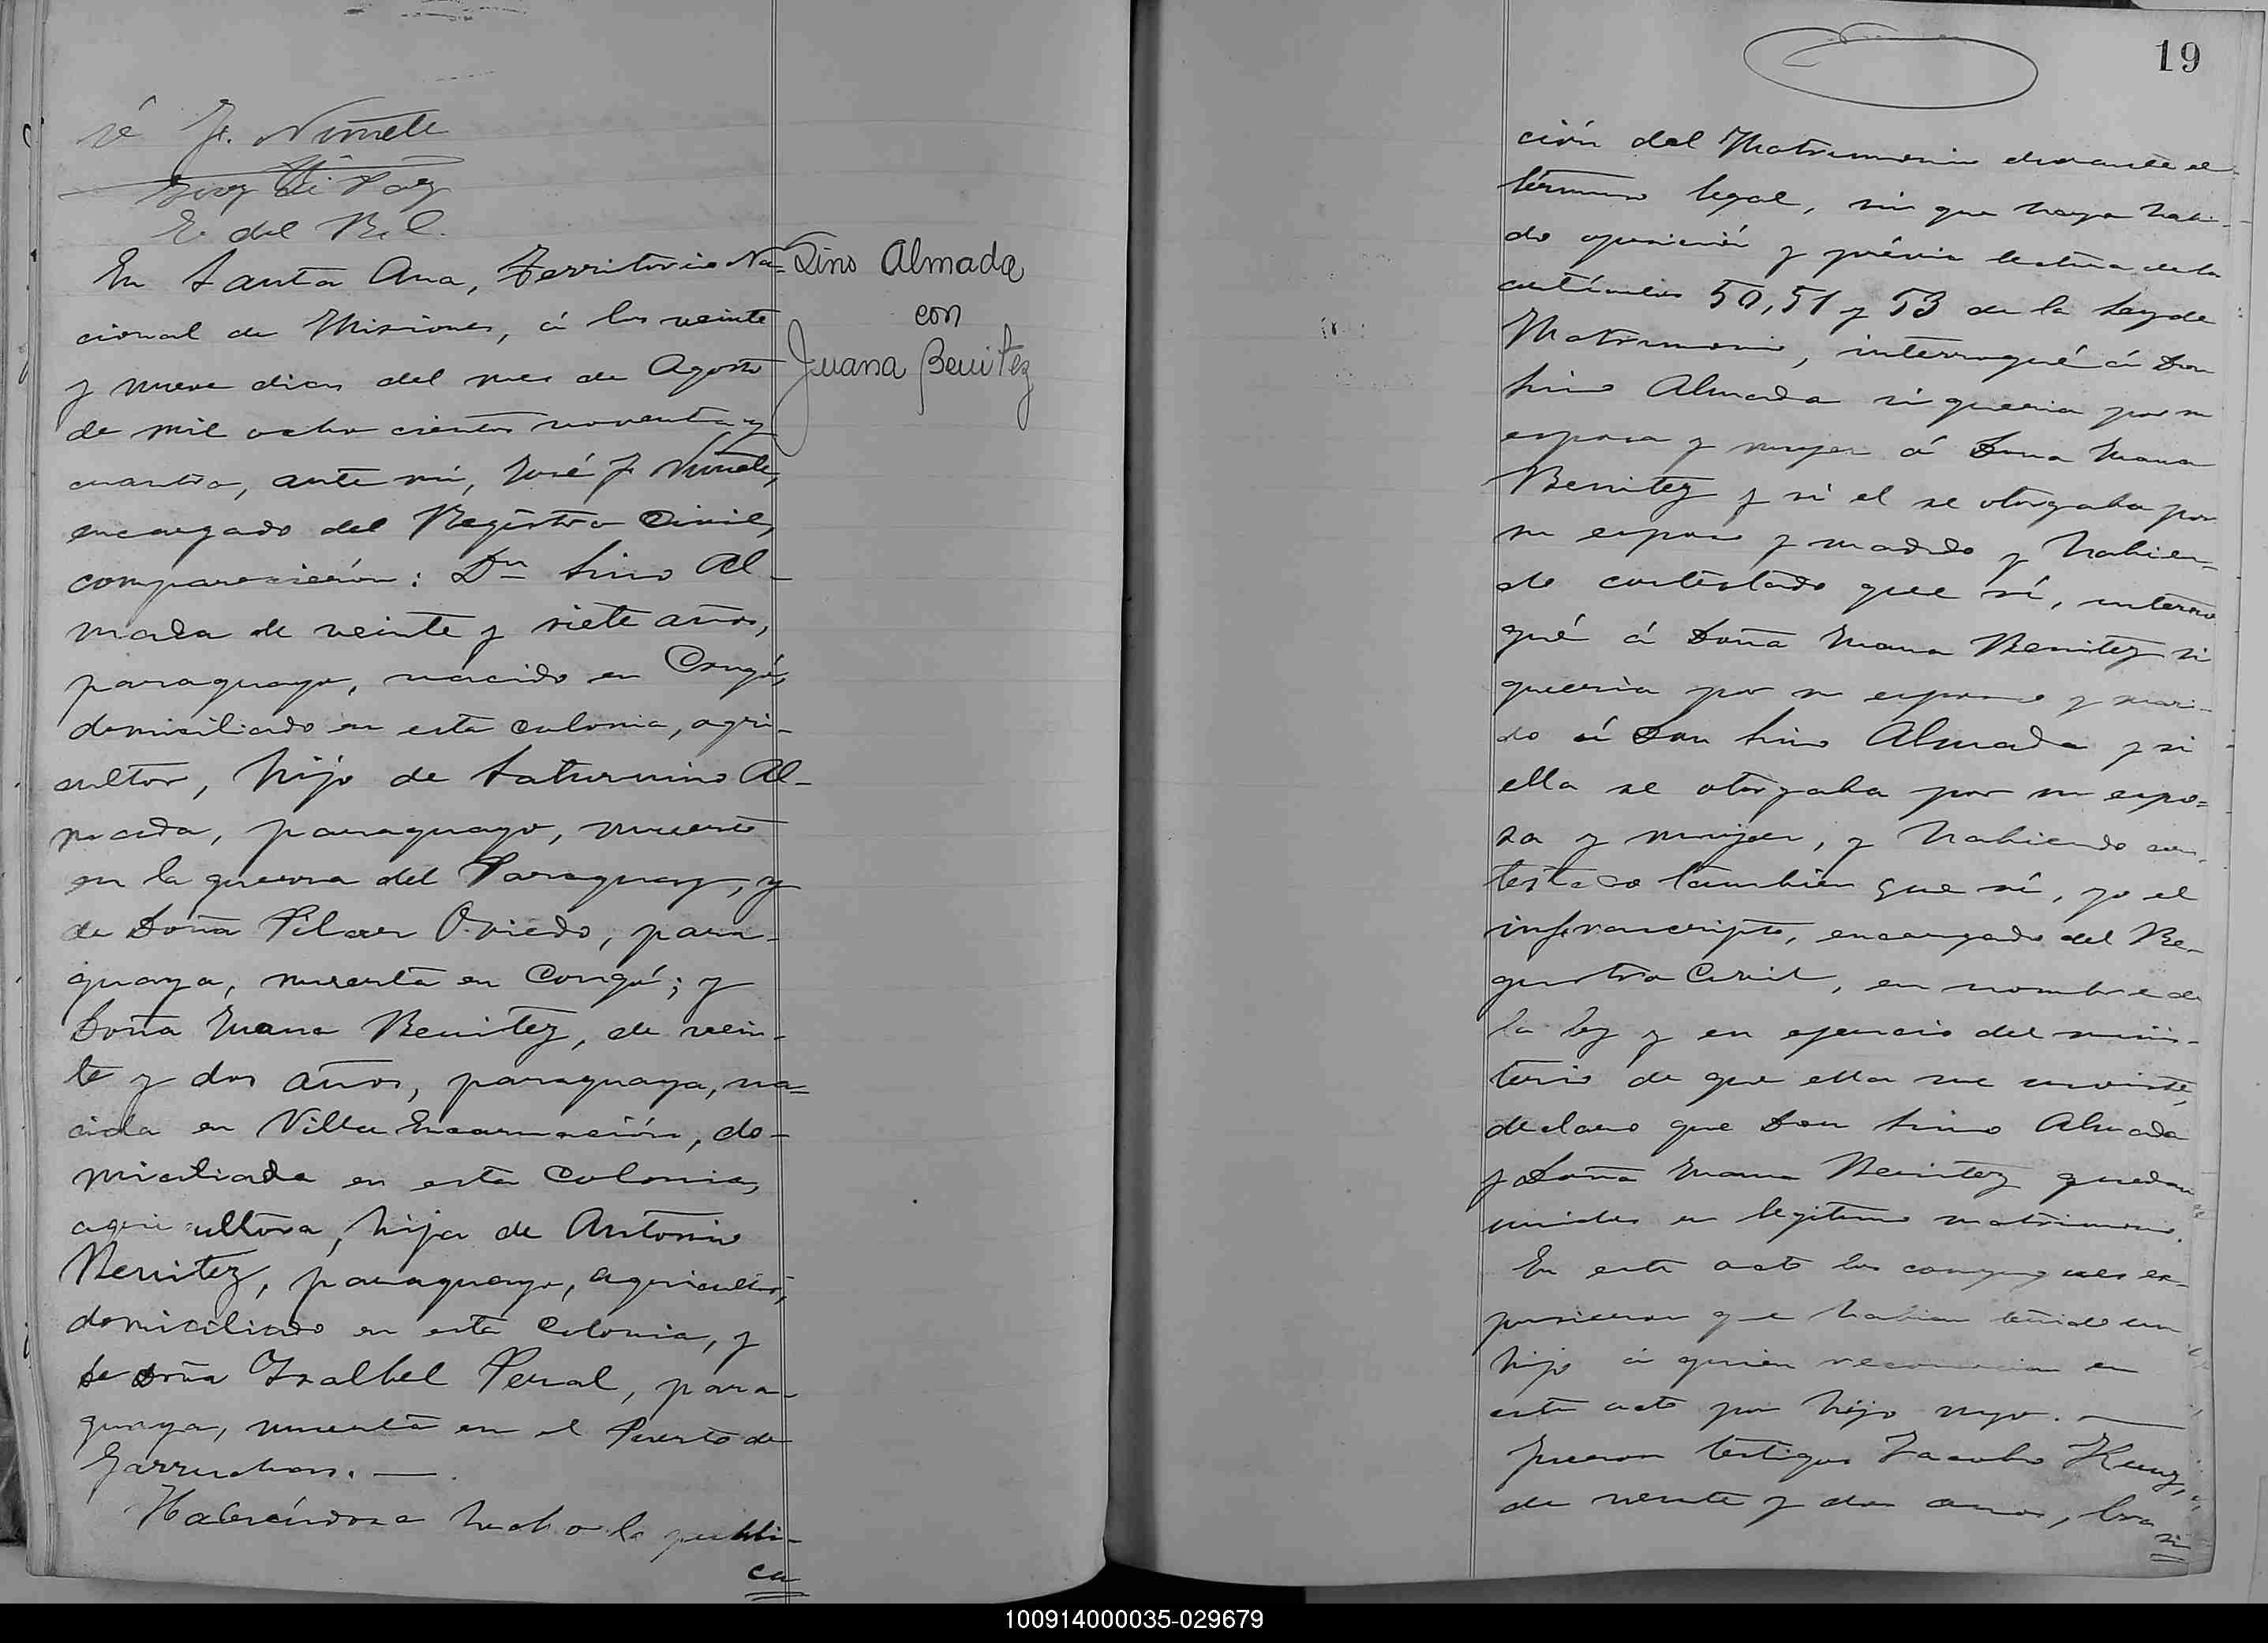 sé J. Nuñele
Juez de Paz
E. del R. C.
En Santa Ana, Territorio Na=
cional de Misiones, á los veinte
y nueve dias del mes de Agosto
de mil ocho cientos noventa y
cuatro, ante mí, José J.
encargado del Registro Civil,
comparecieron: Dn Lino Al-
mada de veinte y siete años,
paraguayo, nacido en Cangó,
domiciliado en esta colonia, agri-
cultor, hijo de Saturnino Al-
mada, paraguayo, muerto
en la guerra del Paraguay, y
de Doña Pilar Oviedo, para-
guaya, muerta en Cangó; y
Doña Juana Benitez, de vein-
te y dos años, paraguaya, na=
cida en Villa Encarnación, do-
miciliada en esta Colonia,
agricultora, hija de Antonio
Benitez, paraguayo, agricultor,
domiciliado en esta Colonia, y
de Doña Ysabel para-
guaya, muerta en el Puerto de
Garruchos. —
Habiéndose hecho la publi-
ca
Lino Almada
con
Juana Benitez
19
ción del Matrimonio durante el
término legal, sin que haya habi-
do oposición y prévia lectura de los
artículos 50, 51 y 53 de la Ley de
Matrimonio, interrogué á Don
Lino Almada si queria por su
esposa y mujer á Doña Juana
Benitez y si el se otorgaba por
su esposo y marido y habien-
do contestado que sí, interro
gué á Doña Juana Benitez si
queria por su esposo y mari-
do á Don Lino Almada y si
ella se otorgaba por su espo=
sa y mujer, y habiendo con-
testado tambien que sí, yo el
infrascripto, encargado del Re-
gistro Civil, en nombre de
la ley y en ejercicio del minis-
terio de que ella me inviste,
declaro que Don Lino Almada
y Doña Juana Benitez quedan
unidos en legitimo matrimonio.
En este acto los conyugues ex-
pusieron que habian tenido un
hijo á quien reconocian en
este acto por hijo suyo. —
Fueron testigos Jacobo Kunz,
de veinte y dos años, bra
si
100914000035-029679